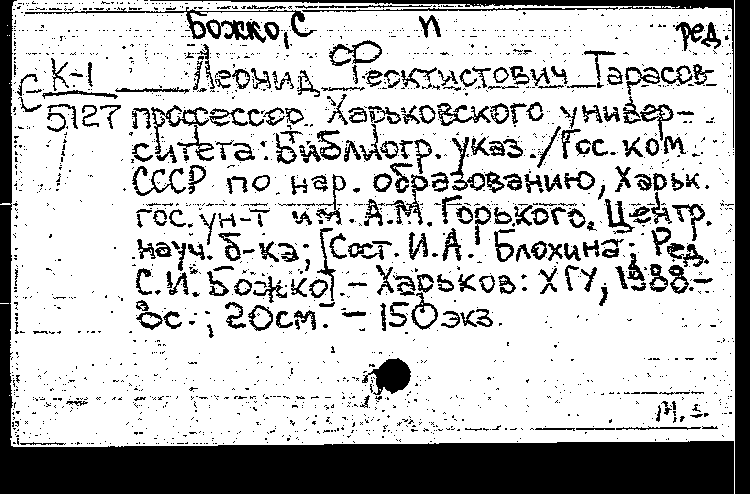 Божко, С И ред.
С К-1 Леонид Феоктистович Тарасов-
5127 профессор Харьковского универ-
ситета: Библиогр. указ. / Гос. ком.
СССР по нар. образованию, Харьк.
гос. ун-т им. А.М. Горького. Центр.
науч. б-ка; [Сост. И.А. Блохина; Ред.
С.И. Божко]. – Харьков: ХГУ, 1988. –
8с.; 20см. – 150 экз.